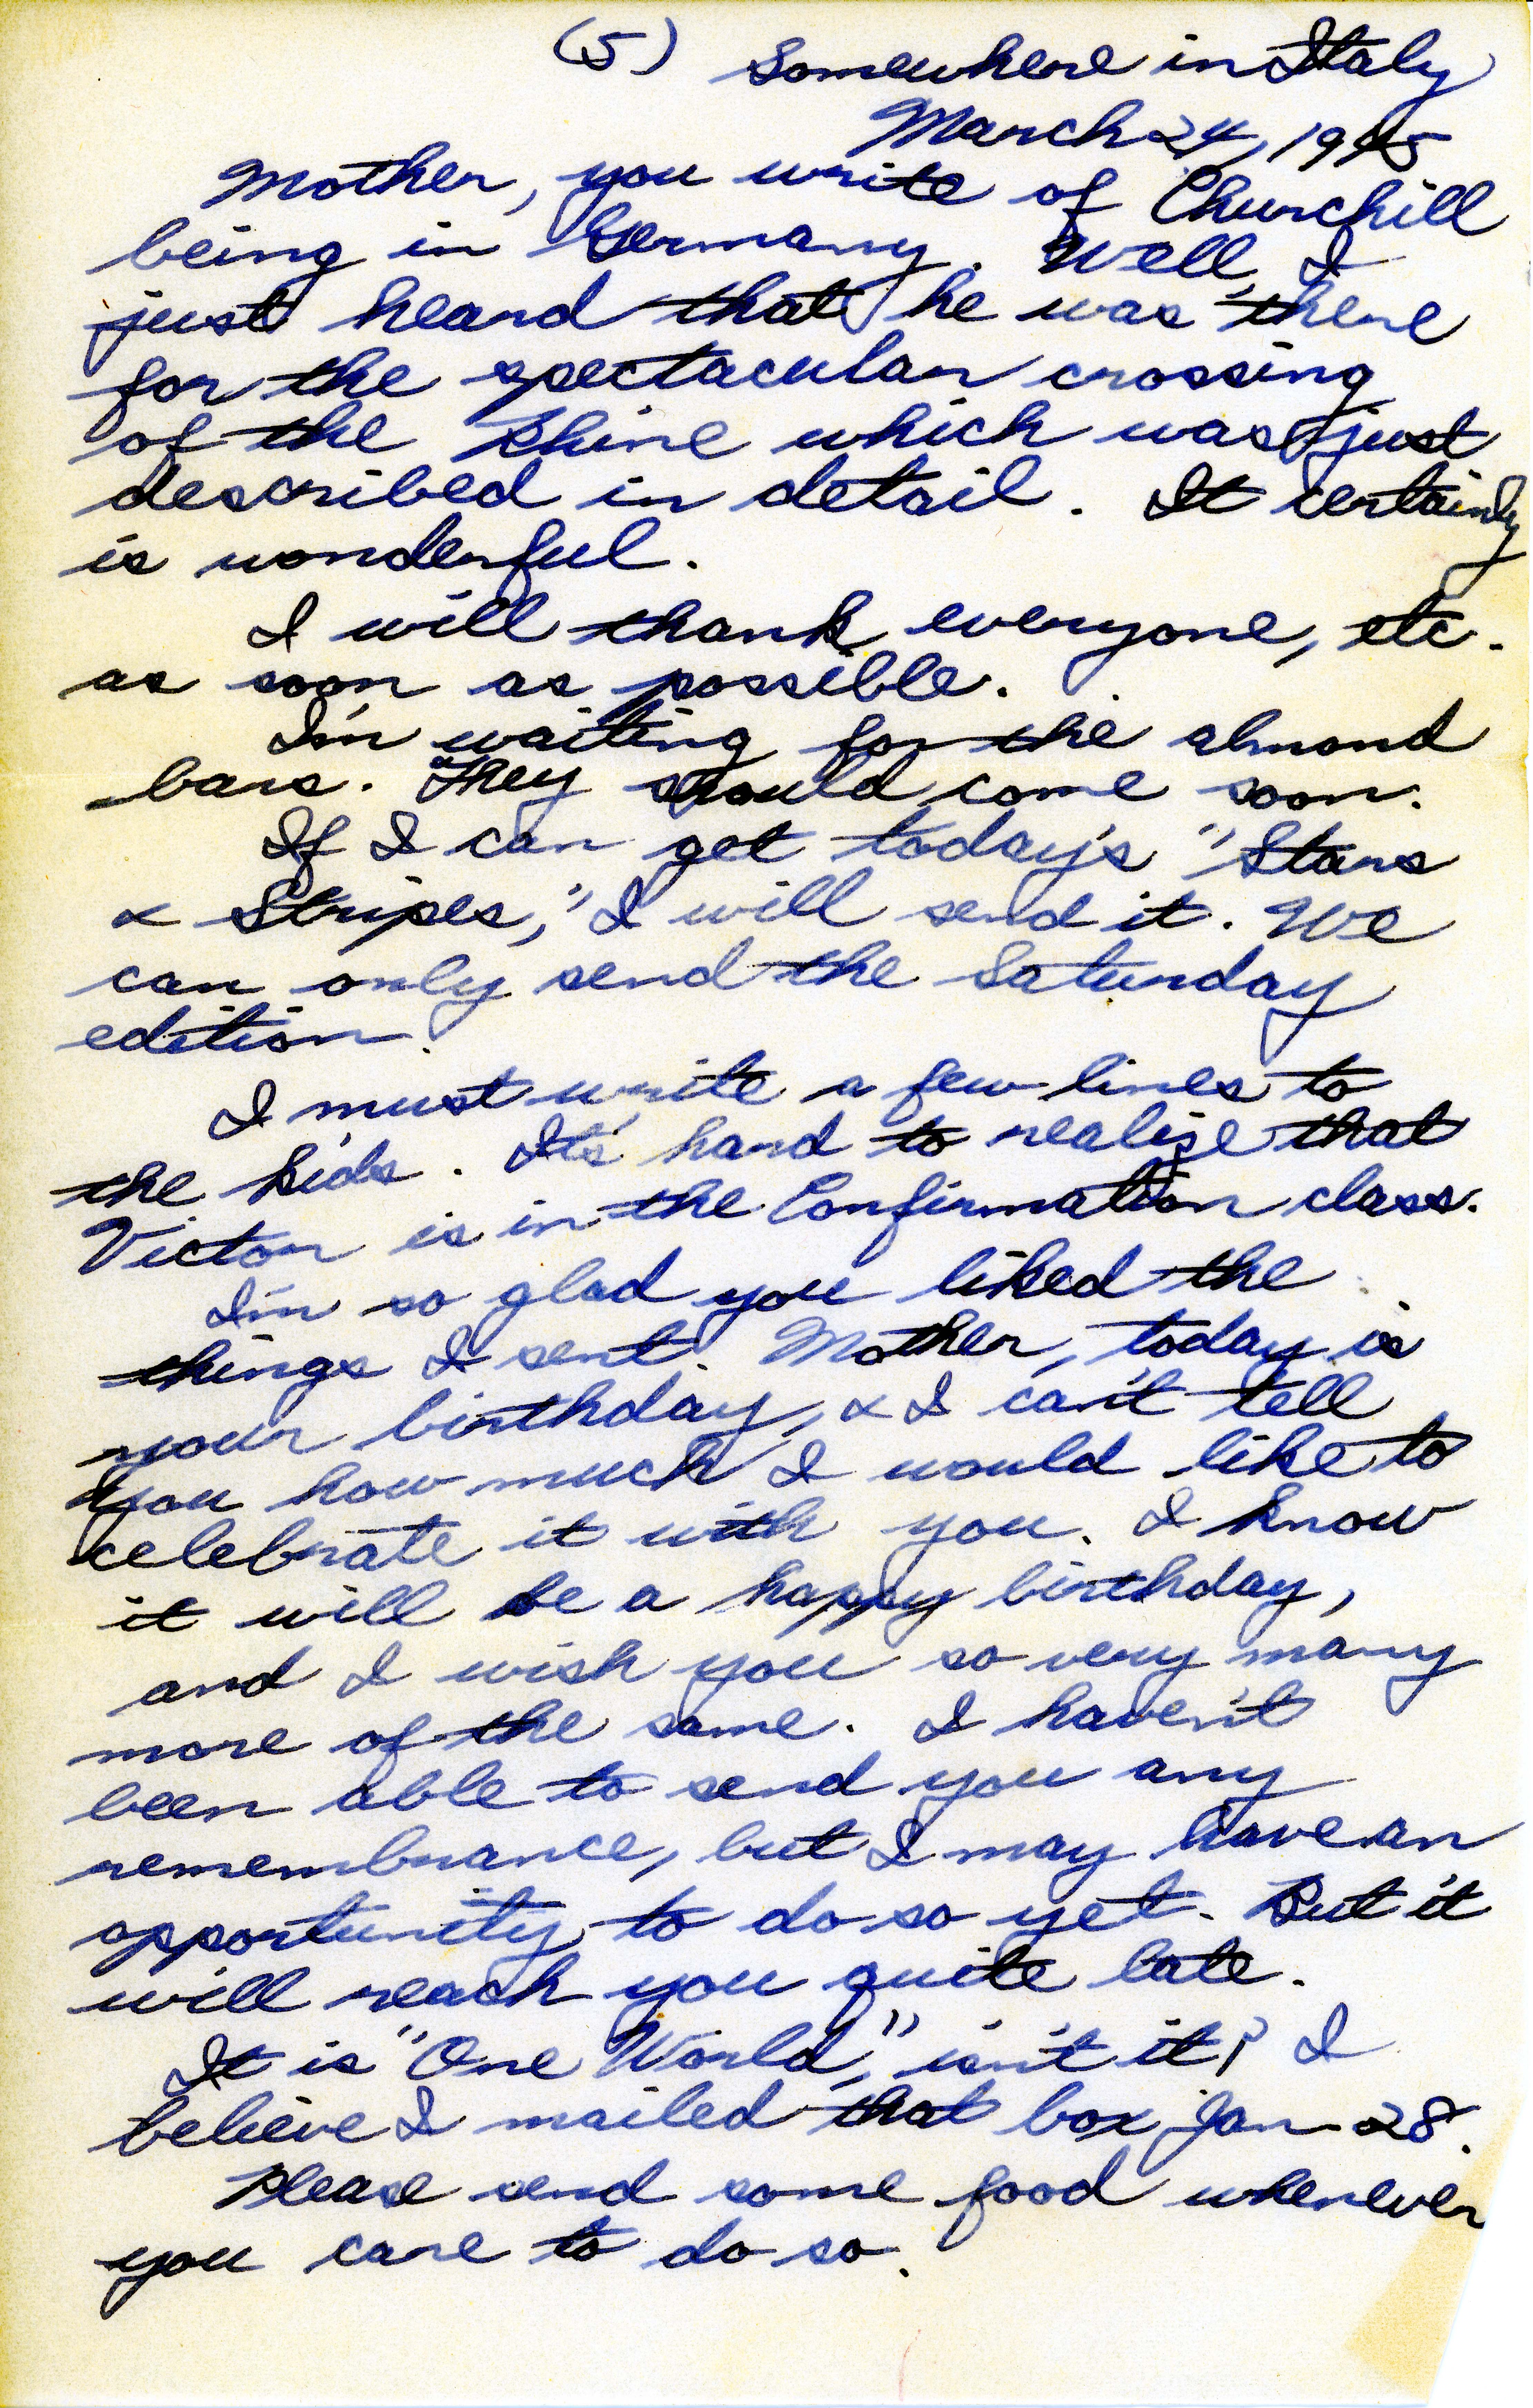 (5) Somewhere in Italy
March 24, 1945
Mother, you write of Churchill
being in Germany. Well, I
just heard that he was there
for the spectacular crossing
of the Rhine which was just
described in detail. It certainly
is wonderful.
I will thank everyone, etc.
as soon as possible.
I'm waiting for the almond
bars. They should come soon.
If I can get today's "Stars
& Stripes," I will send it. We
can only send the Saturday
edition.
I must write a few lines to
the kids. It's hard to realize that
Victor is in the Confirmation class.
I'm so glad you liked the
things I sent. Mother, today is
your birthday, & I can't tell
you how much I would like to
celebrate it with you. I know
it will be a happy birthday,
and I wish you so very many
more of the same. I haven't
been able to send you any
remembrance, but I may have an
opportunity to do so yet. But it
will reach you quite late.
It is "One World," isn't it? I
believe I mailed that box Jan 28.
Please send some food whenever
you care to do so.